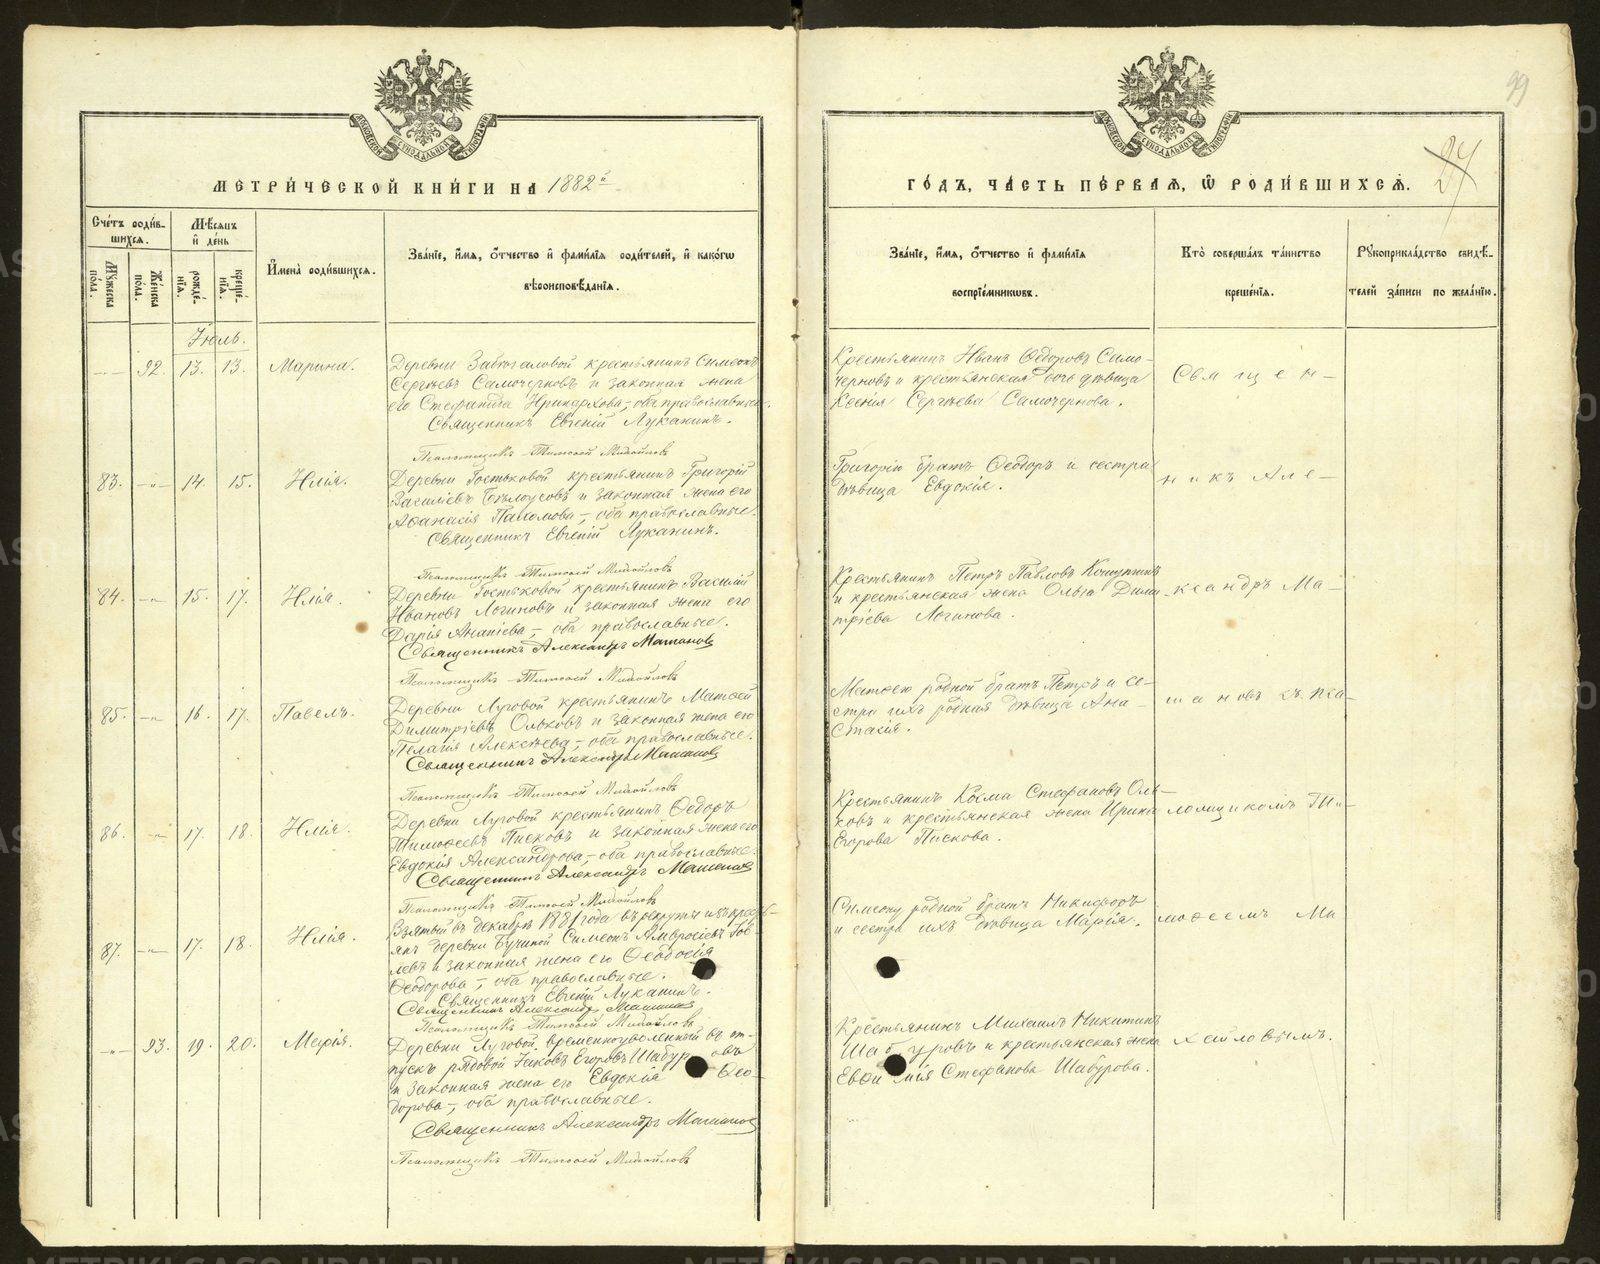 МЕТРИ́ЧЕСКОЙ КНИ́ГИ НА 1882й
Сче́тъ роди́в-
шихся.
Мѣ́сяцъ
и҆ де́нь
Му́жеска
по́ла.
Же́нска
по́ла.
рожде́-
нїя.
креще́-
нїя.
И҆мена̀ роди́вшихся.
Зва́нїе, и҆́мя, о҆́тчество и҆ фами́лїя роди́телей, и҆ како́гѡ
вѣроисповѣ́данїя.
Іюль.
92. 13. 13. Марина.
Деревни крестьянинъ Симеонъ
Сергѣевъ Самочерновъ и законная жена
его Стефанида Иринархова, оба православные.
Священникъ Евгеній Луканинъ.
Псаломщикъ Тимоѳей Михайловъ
83. -„- 14. 15. Илія.
Деревни Гостьковой крестьянинъ Григорій
Васильевъ Бѣлоусовъ и законная жена его
Аѳанасія Пахомова, оба православные.
Священникъ Евгеній Луканинъ.
Псаломщикъ Тимоѳей Михайловъ
84. -„- 15. 17. Илія.
Деревни Гостьковой крестьянинъ Василій
Ивановъ Логиновъ и законная жена его
Дарія Ананіева, оба православные.
Священникъ Александръ
Псаломщикъ Тимоѳей Михайловъ
85. -„- 16. 17. Павелъ.
Деревни Луговой крестьянинъ Матѳей
Димитріевъ Ольковъ и законная жена его
Пелагія Алексѣева, оба православные.
Священникъ Александръ
Псаломщикъ Тимоѳей Михайловъ
86. -„- 17. 18. Илія.
Деревни Луговой крестьянинъ Ѳедоръ
Тимоѳеевъ Писковъ и законная жена его
Евдокія Александрова, оба православные.
Священникъ Александръ
Псаломщикъ Тимоѳей Михайловъ
87. -„- 17. 18. Илія.
Взятый въ декабрѣ 1881 года въ рекруты изъ кресть-
янъ деревни Бучиной Симеонъ Амвросіевъ
и законная жена его Ѳеодосія
Ѳеодорова, оба православные.
Священникъ Евгеній Луканинъ.
Священникъ Александръ
Псаломщикъ Тимоѳей Михайловъ
-„- 93. 19. 20. Марія.
Деревни Луговой временноуволенный въ от-
пускъ рядовой Іаковъ Егоровъ Шабур овъ
и законная жена его Евдокія Ѳео-
дорова, оба православные.
Священникъ Александръ
Псаломщикъ Тимоѳей Михайловъ
99
27
ГО́ДЪ, ЧА́СТЬ ПЕ́РВАЯ, Ѿ РОДИ́ВШИХСЯ.
Зва́нїе, и҆́мя, о҆́тчество и҆ фами́лїя
воспрїе́мникѡвъ.
Кто̀ соверша́лъ та́инство
креще́нїя.
Рꙋкоприкла́дство свидѣ́-
телей за́писи по жела́нїю.
Крестьянинъ Иванъ Ѳедоровъ Само-
черновъ и крестьянская дочь дѣвица
Ксенія Сергѣева Самочернова.
Григорію братъ Ѳеодоръ и сестра
дѣвица Евдокія.
Крестьянинъ Петръ Павловъ
и крестьянская жена Ольга Дими-
тріева Логинова.
Матѳею родной братъ Петръ и се-
стра ихъ родная дѣвица Ана-
стасія.
Крестьянинъ Косма Стефановъ Оль-
ковъ и крестьянская жена Ирина
Егорова Пискова.
Симеону родной братъ Никифоръ
и сестра ихъ дѣвица Марія.
Крестьянинъ Михаилъ Никитинъ
Шабуровъ и крестьянская жена
Евѳимія Стефанова Шабурова.
Священ-
никъ Але-
ксандръ Ма-
шановъ съ пса-
ломщикомъ Ти-
моѳеемъ Ми
хайловымъ.